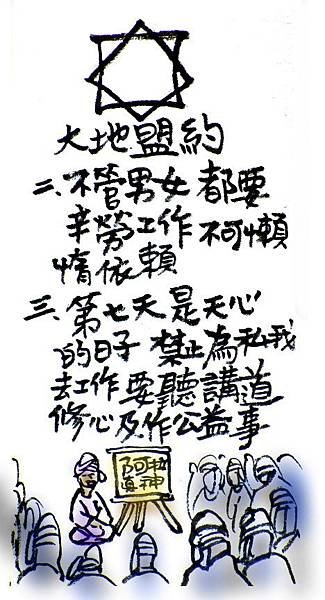 大地盟約
二、不管男女 都要
辛勞工作 不可懶
惰依賴
三、第七天是天心
的日子 禁止為私我
去工作要聽講道
修心及作公益事
阿拉
真神